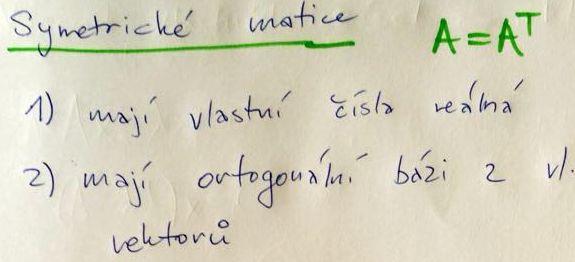 Symetrické matice A = Aᵀ
1) mají vlastní čísla reálná
2) mají ortogonální bázi z vl.
vektorů